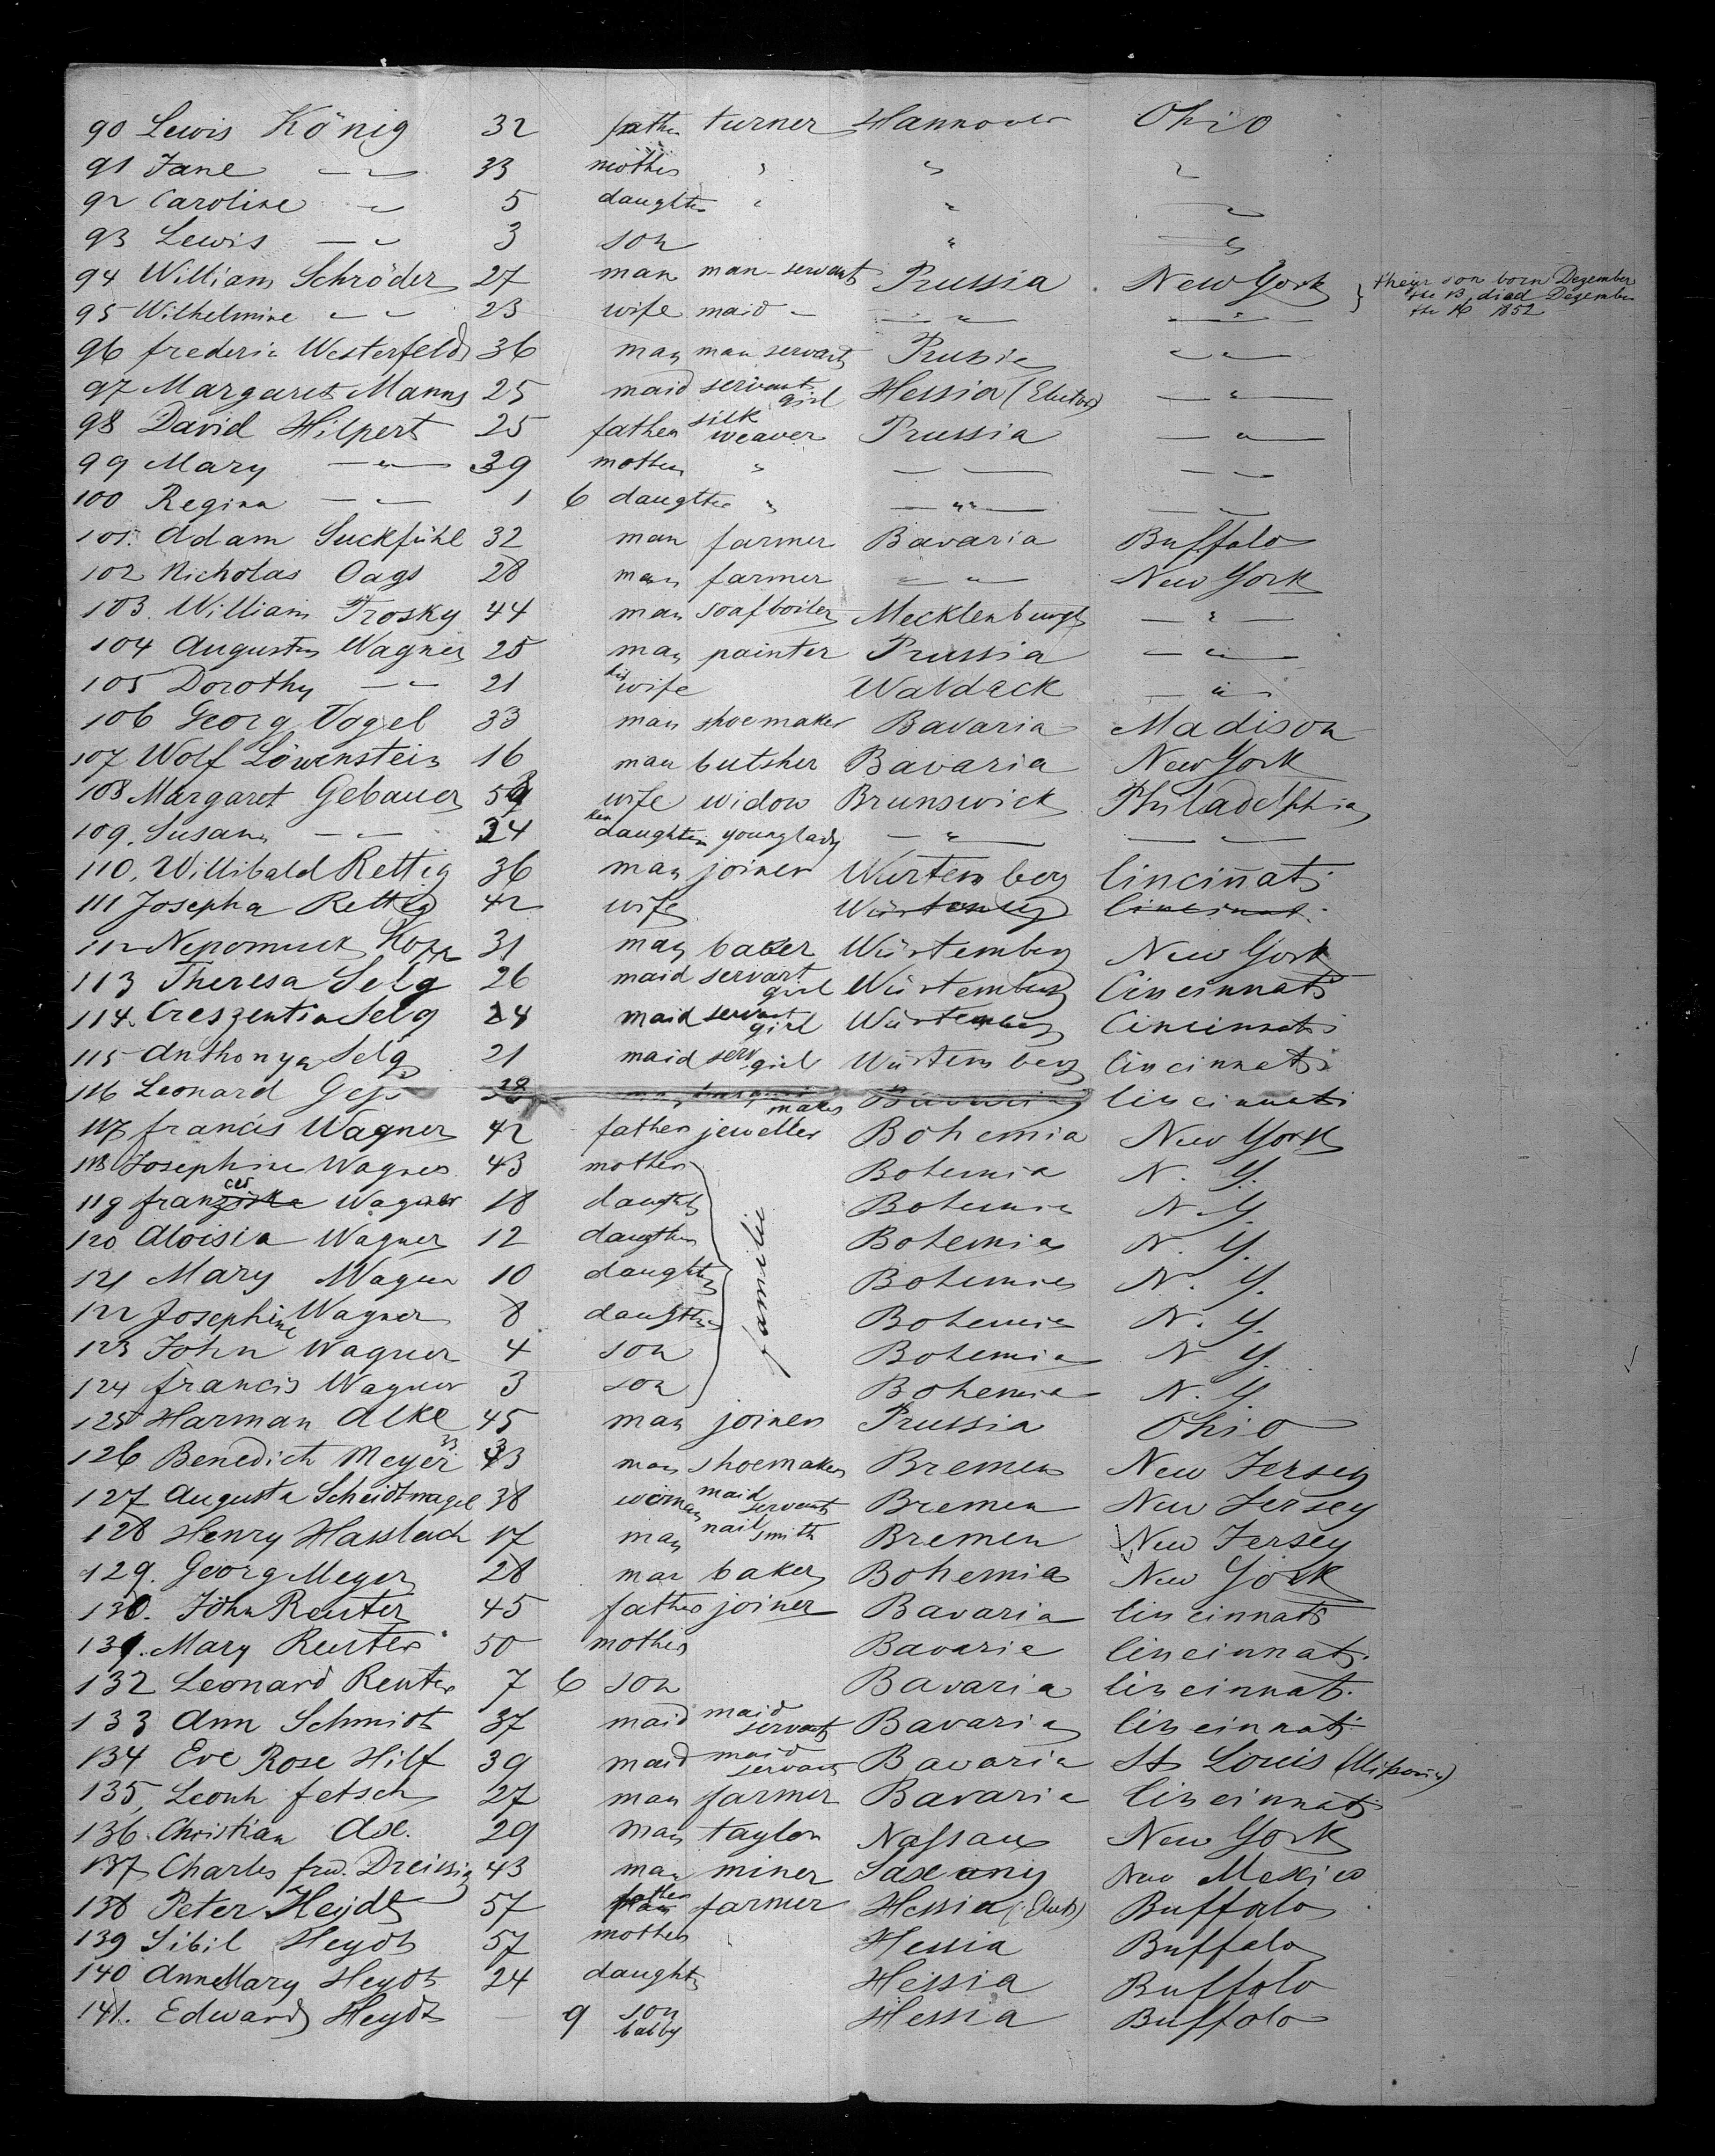 90 Lewis König 32 father turner Hannover Ohio
91 Jane — " 33 mother " " "
92 Caroline " 5 daughter " " "
93 Lewis — " 3 son " "
94 William Schröder 27 man man-servant Prussia New York } their son born Dezember
the 13 died Dezember
the 16 1852
95 Wilhelmine — " 23 wife maid — — " — "
96 frederic Westerfeld 36 man man servant Prussia — "
97 Margaret Manns 25 maid servant girl Hessia (Elector) — " —
98 David Hilpert 25 father silk weaver Prussia — " —
99 Mary — " — 39 mother " — — — "
100 Regina — " — 1 6 daugther " — " — — —
101. Adam Suckfühl 32 man farmer Bavaria Buffalo
102 Nicholas Oags 28 man farmer — " — New York
103. William Trosky 44 man soafboiler Mecklenburgh — " —
104 Augustus Wagner 25 man painter Prussia — " —
105 Dorothy — " 21 his wife Waldeck — " —
106 Georg Vogel 33 man shoemaker Bavaria Madison
107 Wolf Löwenstein 16 man butsher Bavaria New York
108 Margaret Gebauer 59 wife widow Brunswick Philadelphia
109. Susann — " 24 her daughter young lady — " — — "
110. Willibald Rettig 36 man joiner Würtemberg Cincinnati
111 Josepha Rettig 42 wife Würtemberg Cincinnati
112 Nepomuck Kopp 31 man baker Würtemberg New York
113 Theresa Selg 26 maid servant girl Würtemberg Cincinnati
114. Creszentia Selg 24 maid servant girl Würtemberg Cincinnati
115 Anthonya Selg 21 maid serv girl Würtemberg Cincinnati
116 Leonard 38 maker Bavaria Cincinnati
117 francis Wagner 42 father jeweller Bohemia New York
118 Josephine Wagner 43 mother Bohemia N. Y.
119 franziska ces Wagner 18 daughter Bohemia N. Y.
120 Aloisia Wagner 12 daugther Bohemia N. Y.
121 Mary Wagner 10 daughter familie Bohemia N. Y.
122 Josephine Wagner 8 daugther Bohemia N. Y.
123 John Wagner 4 son Bohemia N Y.
124 francis Wagner 3 son Bohemia N. Y
125 Harman Alke 45 man joiner Prussia Ohio
126 Benedict Meyer 33 33 man shoemaker Bremen New Jersey
127 Augusta Scheidtnagel 38 woman maid servant Bremen New Jersey
128 Henry Hasslach 17 man nail smith Bremen New Jersey
129. Georg Meyer 28 man baker Bohemia New York
130. John Reuter 45 father joiner Bavaria Cincinnati
131. Mary Reuter 50 mother Bavaria Cincinnati
132 Leonard Reuter 7 6 son Bavaria Cincinnati
133 Ann Schmidt 37 maid maid servant Bavaria Cincinnati
134 Eve Rose Hilf 39 maid maid servant Bavaria St Louis (Missouri)
135, Leonh fetsch 27 man farmer Bavaria Cincinnati
136. Christian Axe. 29 man taylor Nassau New York
137 Charles fred. Dreissig 43 man miner Saxony New Mexico
138 Peter Heydt 57 father farmer Hessia (Elect) Buffalo
139 Sibil Heydt 57 mother Hessia Buffalo
140 AnneMary Heydt 24 daughter Hessia Buffalo
141. Edward Heydt — 9 son babby Hessia Buffalo